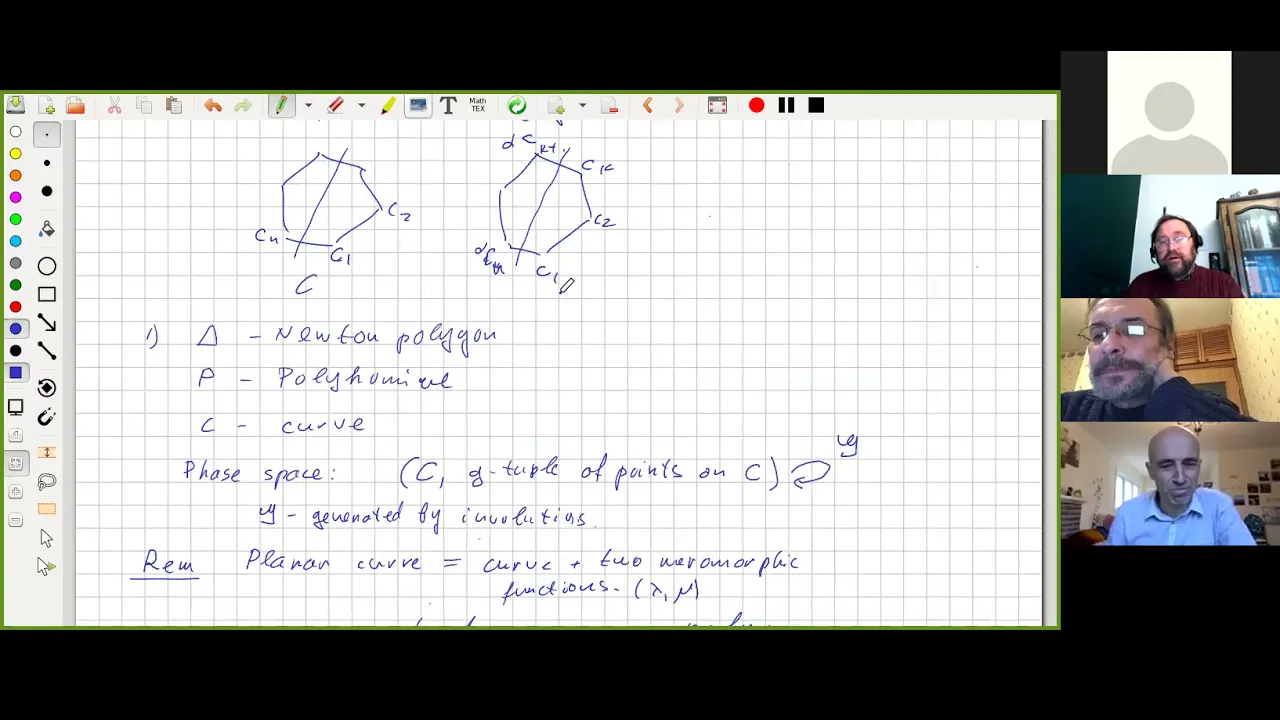 Math
TEX
d C
C k
C2
C2
Cn
C1
C1
C
1) Δ - Newton polygon
P - Polynomial
C - curve
Phase space: (C, g-tuple of points on C)
y - generated by involutions.
Rem Planar curve = curve + two meromorphic
functions. (λ, μ)